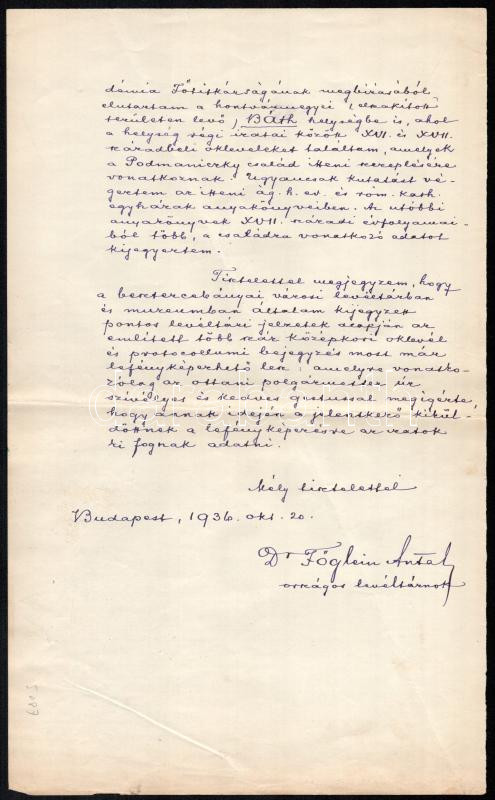 démia Főtitkárságának megbízásából
elutaztam a hontvármegyei (elszakított
területen levő) Báth helységbe is, ahol
a helység régi iratai között XVI. és XVII.
századbeli okleveleket találtam, amelyek
a Podmaniczky család itteni szereplésére
vonatkoznak. Ugyancsak kutatást vé-
geztem az itteni ág. h. ev. és róm. kath.
egyházak anyakönyveiben. Az utóbbi
anyakönyvek XVII. századi évfolyamai-
ból több, a családra vonatkozó adatot
kijegyeztem.
Tisztelettel megjegyzem, hogy
a besztercebányai városi levéltárban
és múzeumban általam kijegyzett
pontos levéltári jelzetek alapján az
említett több száz középkori oklevél
és protocollumi bejegyzés most már
lefényképezhető lesz: amelyre vonatko-
zólag az ottani polgármester úr
szívélyes és kedves gestussal megígérte,
hogy annak idején a jelentkező kikül-
döttnek a lefényképezésre az iratok
ki fognak adatni.
Mély tisztelettel
Budapest, 1936. okt. 20.
Dr Főglein Antal
országos levéltárnok